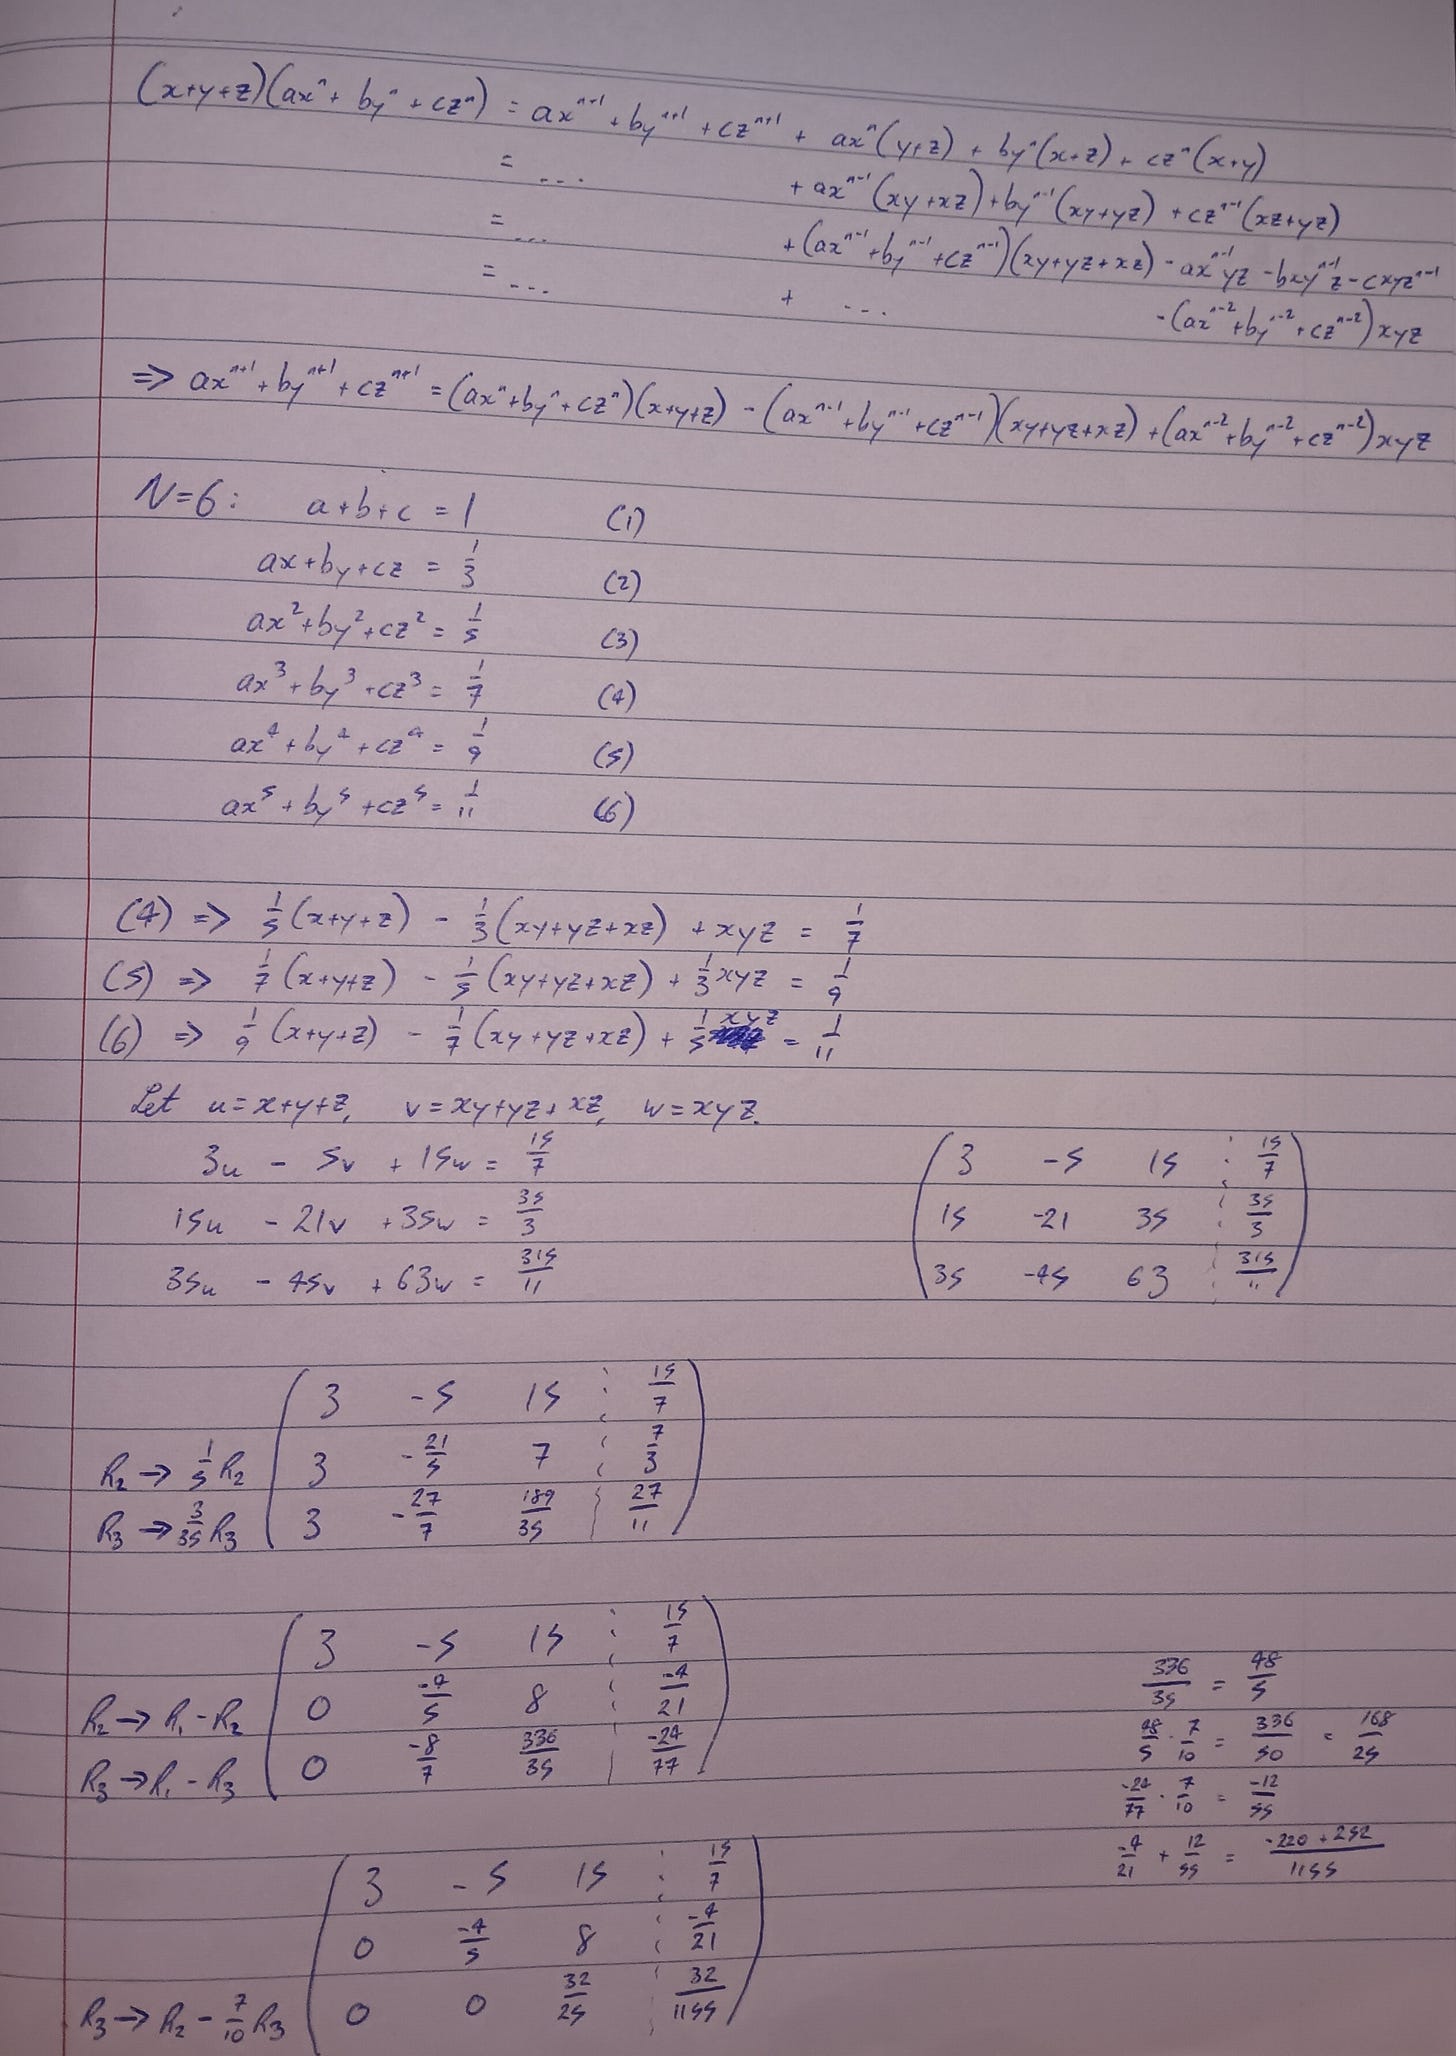 (x+y+z)(axⁿ + byⁿ + czⁿ) = axⁿ⁺¹ + byⁿ⁺¹ + czⁿ⁺¹ + axⁿ(y+z) + byⁿ(x+z) + czⁿ(x+y)
= ... + axⁿ⁻¹(xy+xz) + byⁿ⁻¹(xy+yz) + czⁿ⁻¹(xz+yz)
= ... + (axⁿ⁻¹+byⁿ⁻¹+czⁿ⁻¹)(xy+yz+xz) - axⁿ⁻¹yz - bxyⁿ⁻¹z - cxyzⁿ⁻¹
= ... + ... - (axⁿ⁻²+byⁿ⁻²+czⁿ⁻²)xyz
=> axⁿ⁺¹+byⁿ⁺¹+czⁿ⁺¹ = (axⁿ+byⁿ+czⁿ)(x+y+z) - (axⁿ⁻¹+byⁿ⁻¹+czⁿ⁻¹)(xy+yz+xz) + (axⁿ⁻²+byⁿ⁻²+czⁿ⁻²)xyz
N=6: a+b+c = 1 (1)
ax+by+cz = 1/3 (2)
ax²+by²+cz² = 1/5 (3)
ax³+by³+cz³ = 1/7 (4)
ax⁴+by⁴+cz⁴ = 1/9 (5)
ax⁵+by⁵+cz⁵ = 1/11 (6)
(4) => 1/5 (x+y+z) - 1/3 (xy+yz+xz) + xyz = 1/7
(5) => 1/7 (x+y+z) - 1/5 (xy+yz+xz) + 1/3 xyz = 1/9
(6) => 1/9 (x+y+z) - 1/7 (xy+yz+xz) + 1/5 xyz = 1/11
Let u=x+y+z, v=xy+yz+xz, w=xyz.
3u - 5v + 15w = 15/7
15u - 21v + 35w = 35/3
35u - 45v + 63w = 315/11
3 -5 15 : 15/7
15 -21 35 : 35/3
35 -45 63 : 315/11
3 -5 15 : 15/7
R₂ → 1/5 R₂ 3 -21/5 7 : 7/3
R₃ → 3/35 R₃ 3 -27/7 189/35 : 27/11
3 -5 15 : 15/7
R₂ → R₁ - R₂ 0 -4/5 8 : -4/21
R₃ → R₁ - R₃ 0 -8/7 336/35 : -24/77
336/35 = 48/5
48/5 · 7/10 = 336/50 = 168/25
-24/77 · 7/10 = -12/55
-4/21 + 12/55 = (-220 + 252)/1155
3 -5 15 : 15/7
0 -4/5 8 : -4/21
R₃ → R₂ - 7/10 R₃ 0 0 32/25 : 32/1155